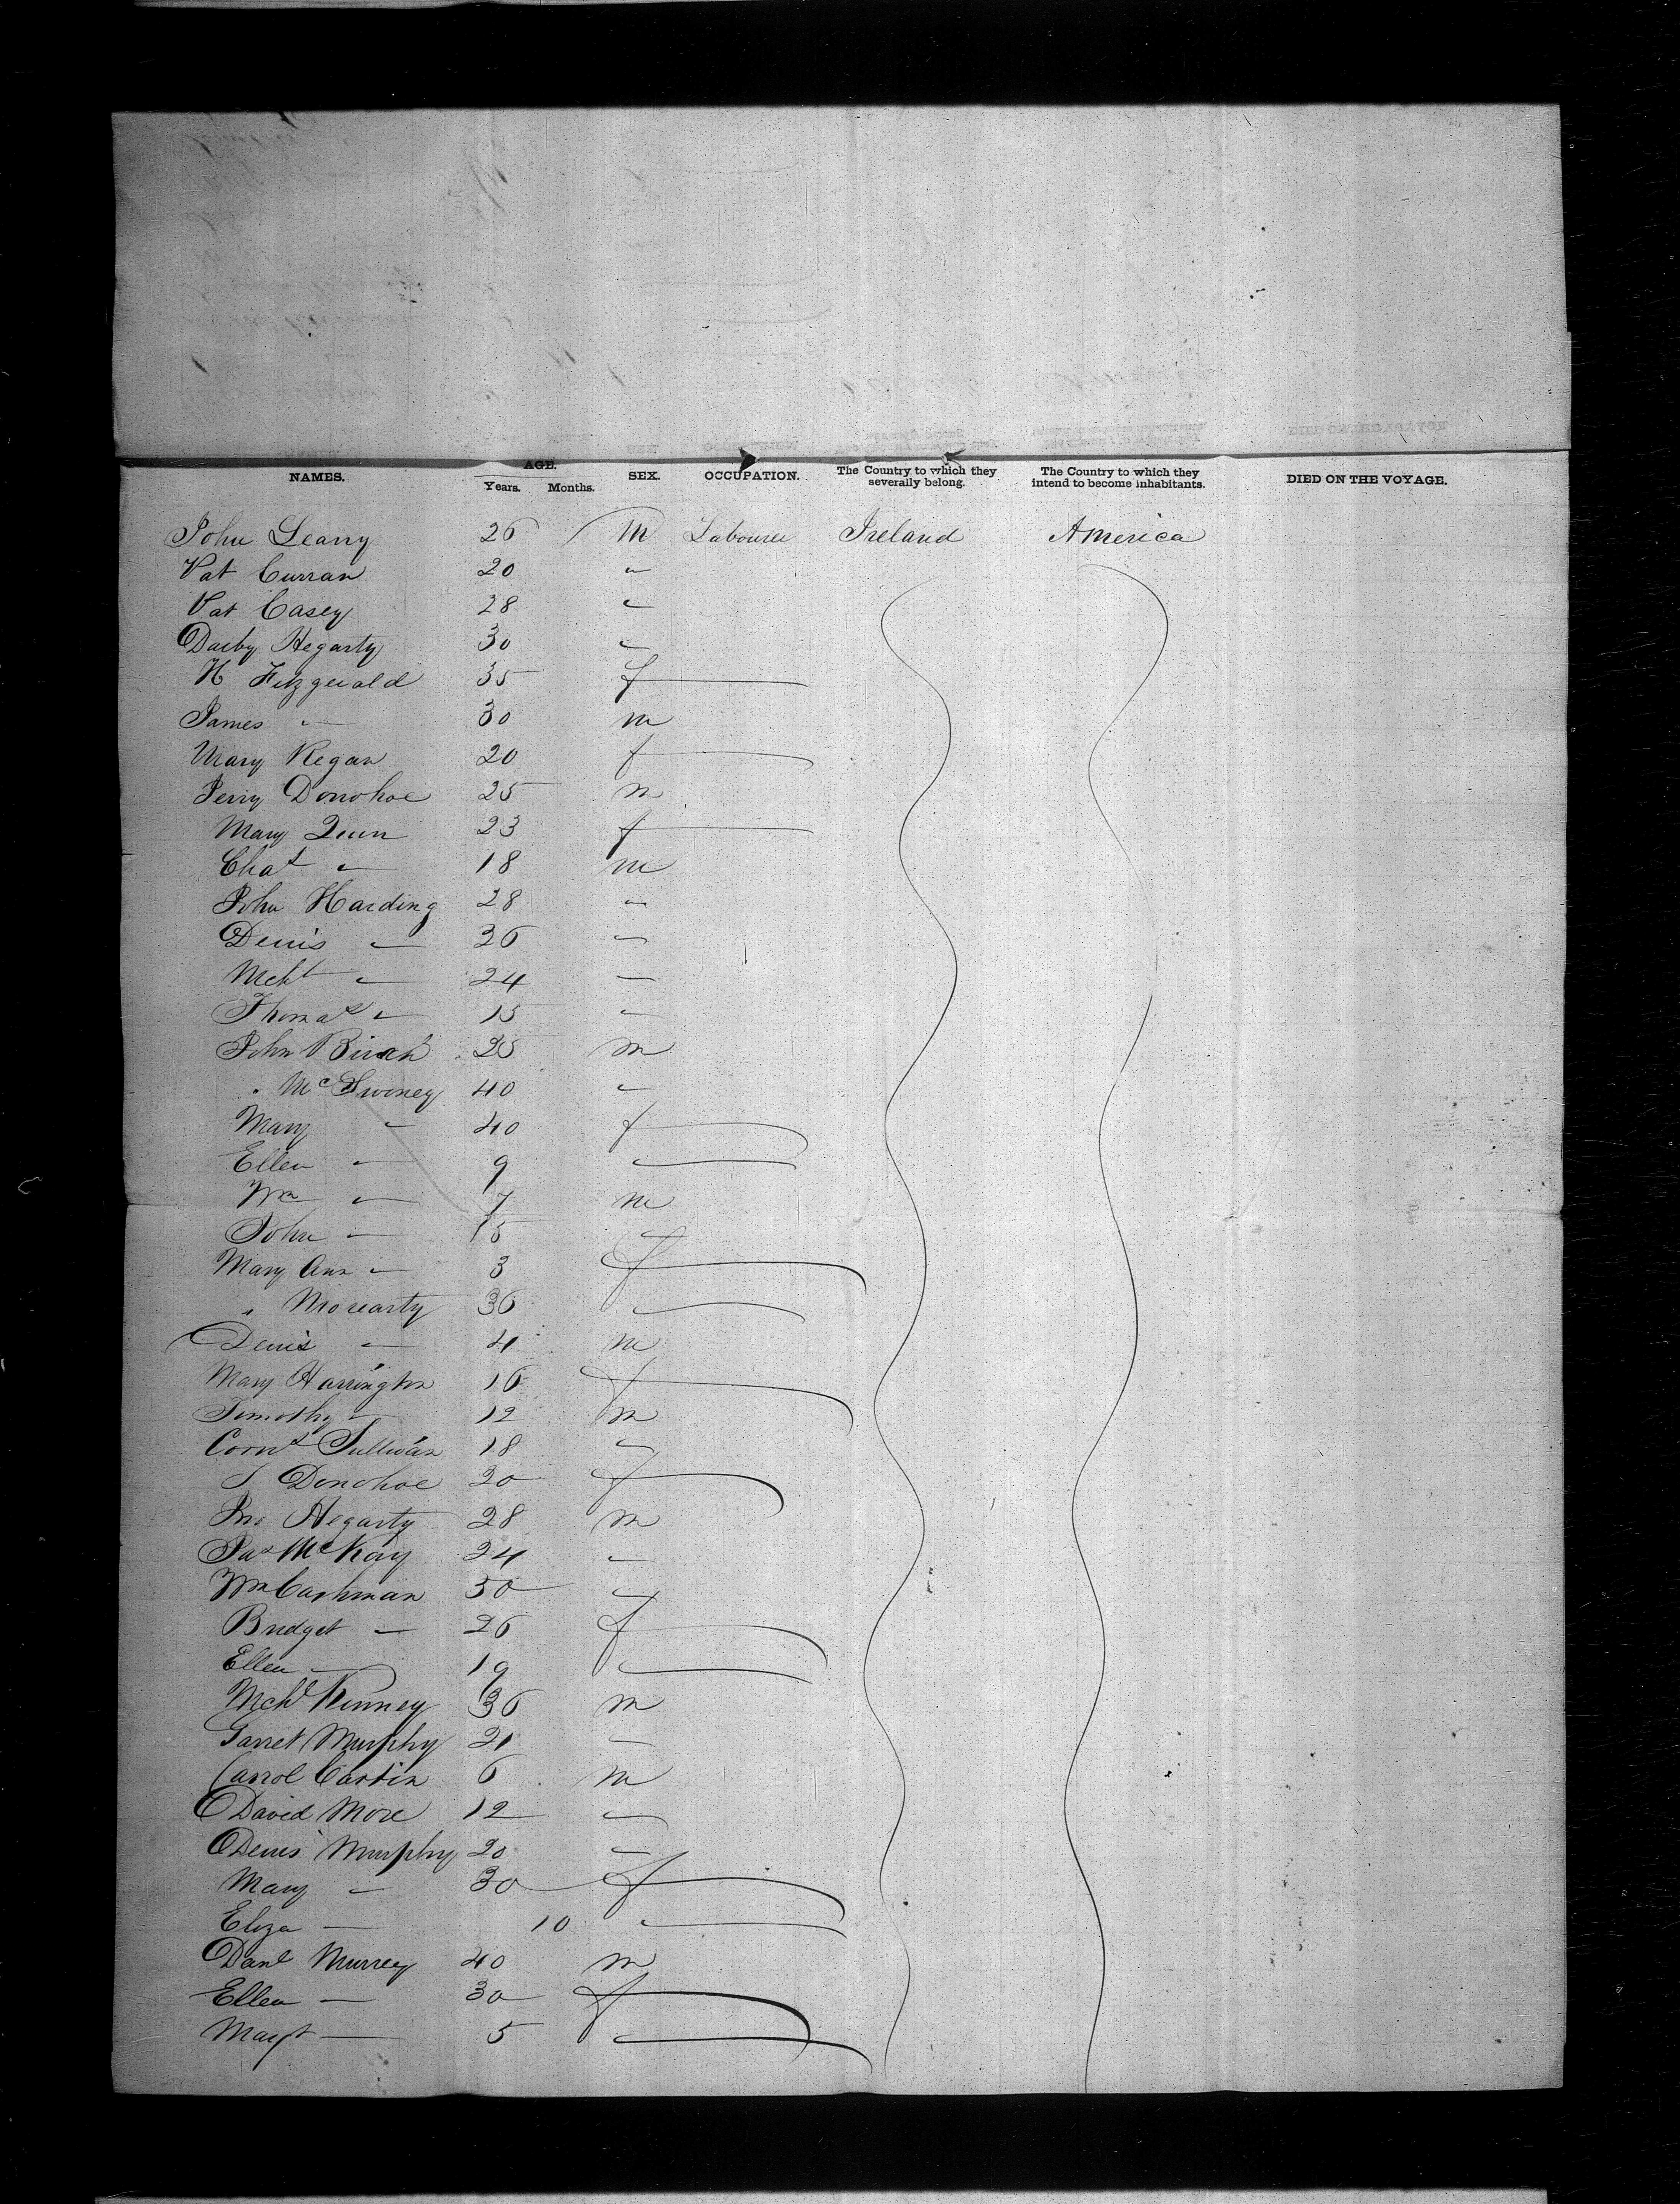 NAMES. AGE. Years. Months. SEX. OCCUPATION. The Country to which they severally belong. The Country to which they intend to become inhabitants. DIED ON THE VOYAGE.
John Leary 26 M Labourer Ireland America
Pat Curran 20 "
Pat Casey 28 "
Darby Hegarty 30 "
H Fitzgerald 35 f
James " 30 m
Mary Regan 20 f
Jerry Donohoe 25 m
Mary Quin 23 f
Chas " 18 m
John Harding 28 "
Denis " 26 "
Mchl " 24 "
Thomas " 15 "
John Birch 25 m
" McSwiney 40 "
Mary " 40 f
Ellen " 9 "
Wm " 7 m
John " 15 "
Mary Ann " 3 f
" Moriarty 36 "
Denis " 4 m
Mary Harrington 16 f
Timothy " 12 m
Corns Sullivan 18 "
Donohoe 20 f
Jno Hegarty 28 m
Jas McKay 24 "
Wm Cashman 30 "
Bridget " 26 f
Ellen " 19 "
Mchl Kinney 36 m
Garret Murphy 21 "
Carrol 6 m
David More 12 "
Denis Murphy 20 "
Mary " 30 f
Eliza " 10 "
Danl Murrey 40 m
Ellen " 30 f
Magt " 5 "